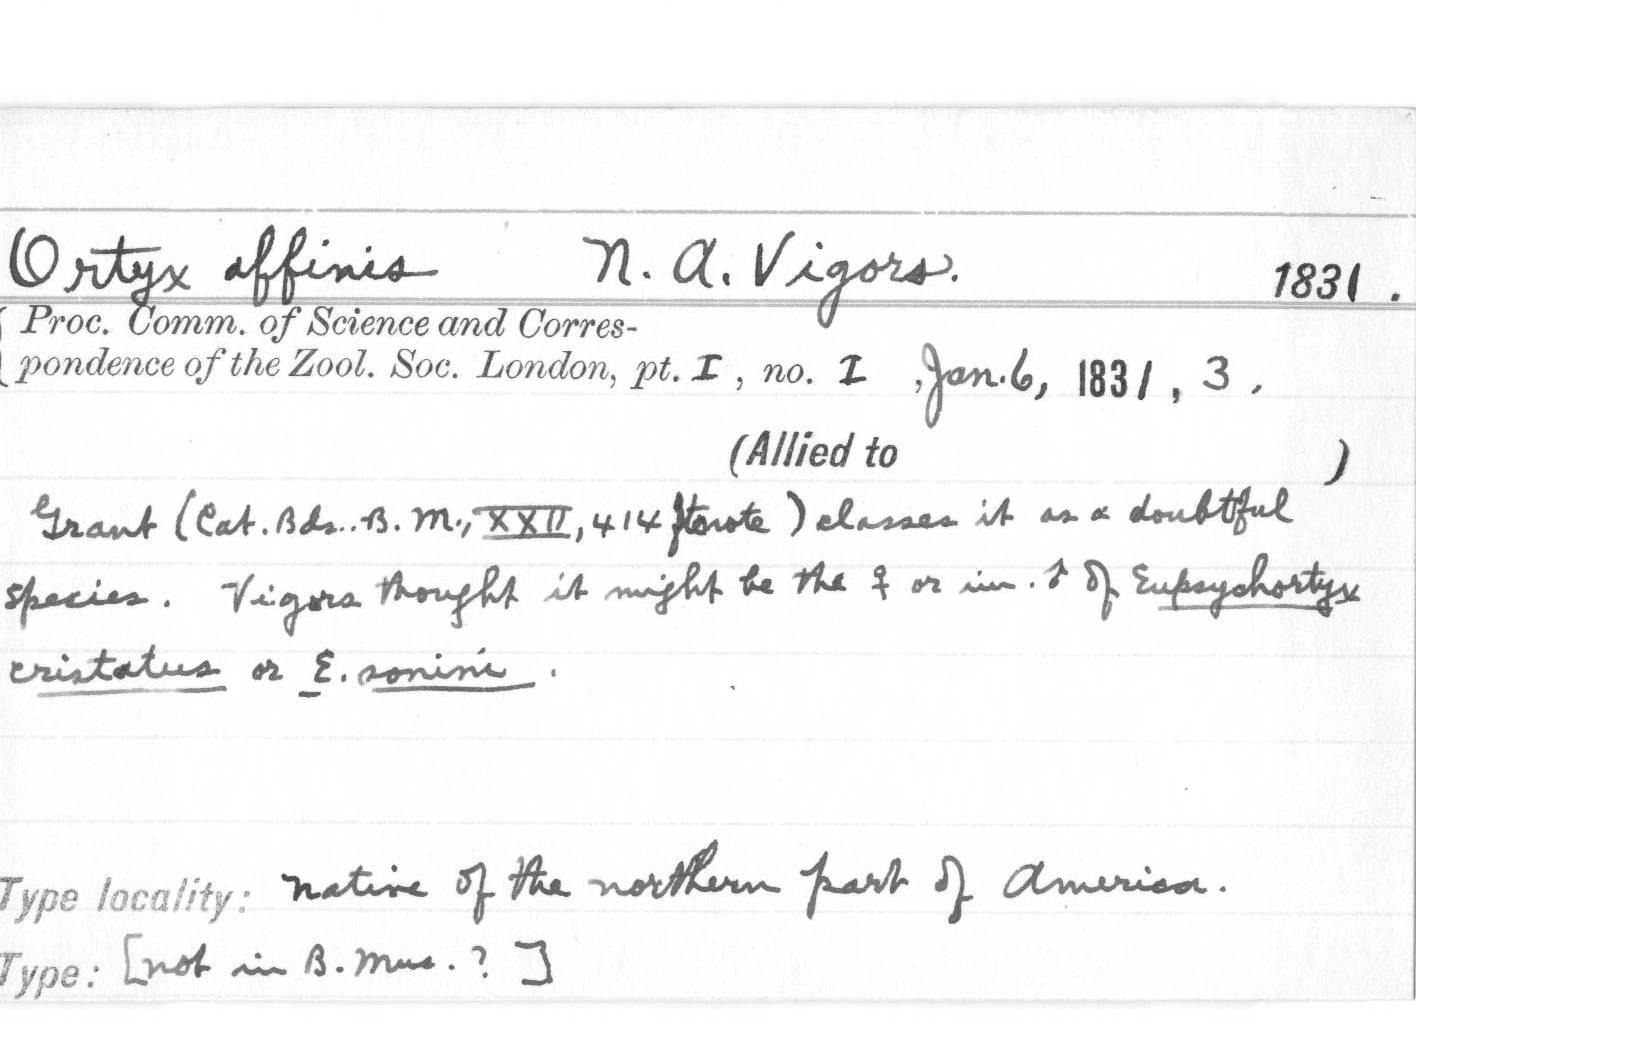 Ortyx affinis N. A. Vigors. 1831.
Proc. Comm. of Science and Corres-
pondence of the Zool. Soc. London, pt. I, no. I, Jan. 6, 1831, 3.
(Allied to )
Grant (Cat. Bds. B. M., XXII, 414 ftnote) classes it as a doubtful
species. Vigors thought it might be the ♀ or im. ♂ of Eupsychortyx
cristatus or E. sonini.
Type locality: native of the northern part of America.
Type: [not in B. Mus. ?]